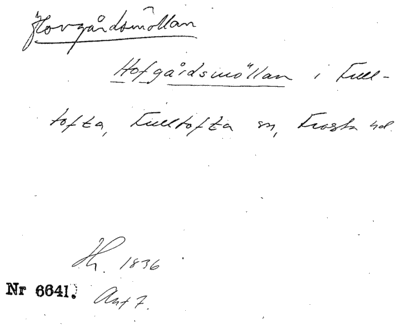 Hovgårdsmöllan
Hofgårdsmöllan i Full-
tofta, Fulltofta sn, Frosta hd.
Hh. 1836
Nr 6641. Ant 7.